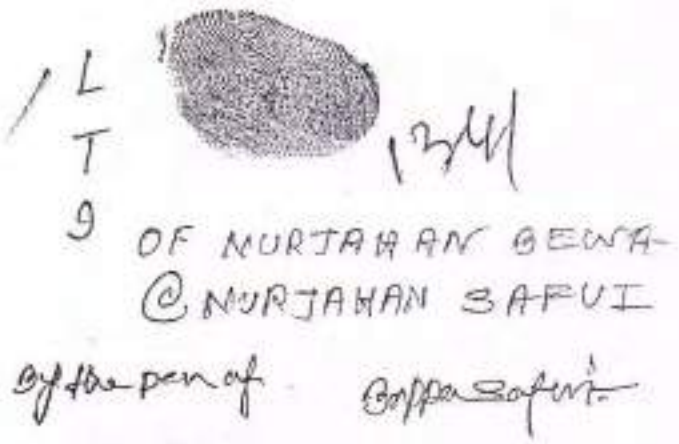 L
T
I
1341
OF NURJAHAN BEWA
@ NURJAHAN SAFUI
By the pen of Bappa Safui